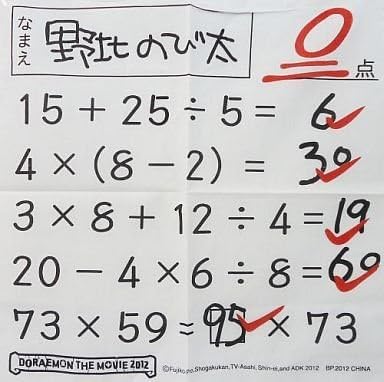 なまえ 野比のび太 0点
15 + 25 ÷ 5 = 6
4 × (8 − 2) = 30
3 × 8 + 12 ÷ 4 = 19
20 − 4 × 6 ÷ 8 = 60
73 × 59 = 95 × 73
DORAEMON THE MOVIE 2012 ©Fujiko-pro,Shogakukan,TV-Asahi, Shin-ei,and ADK 2012 BP.2012 CHINA